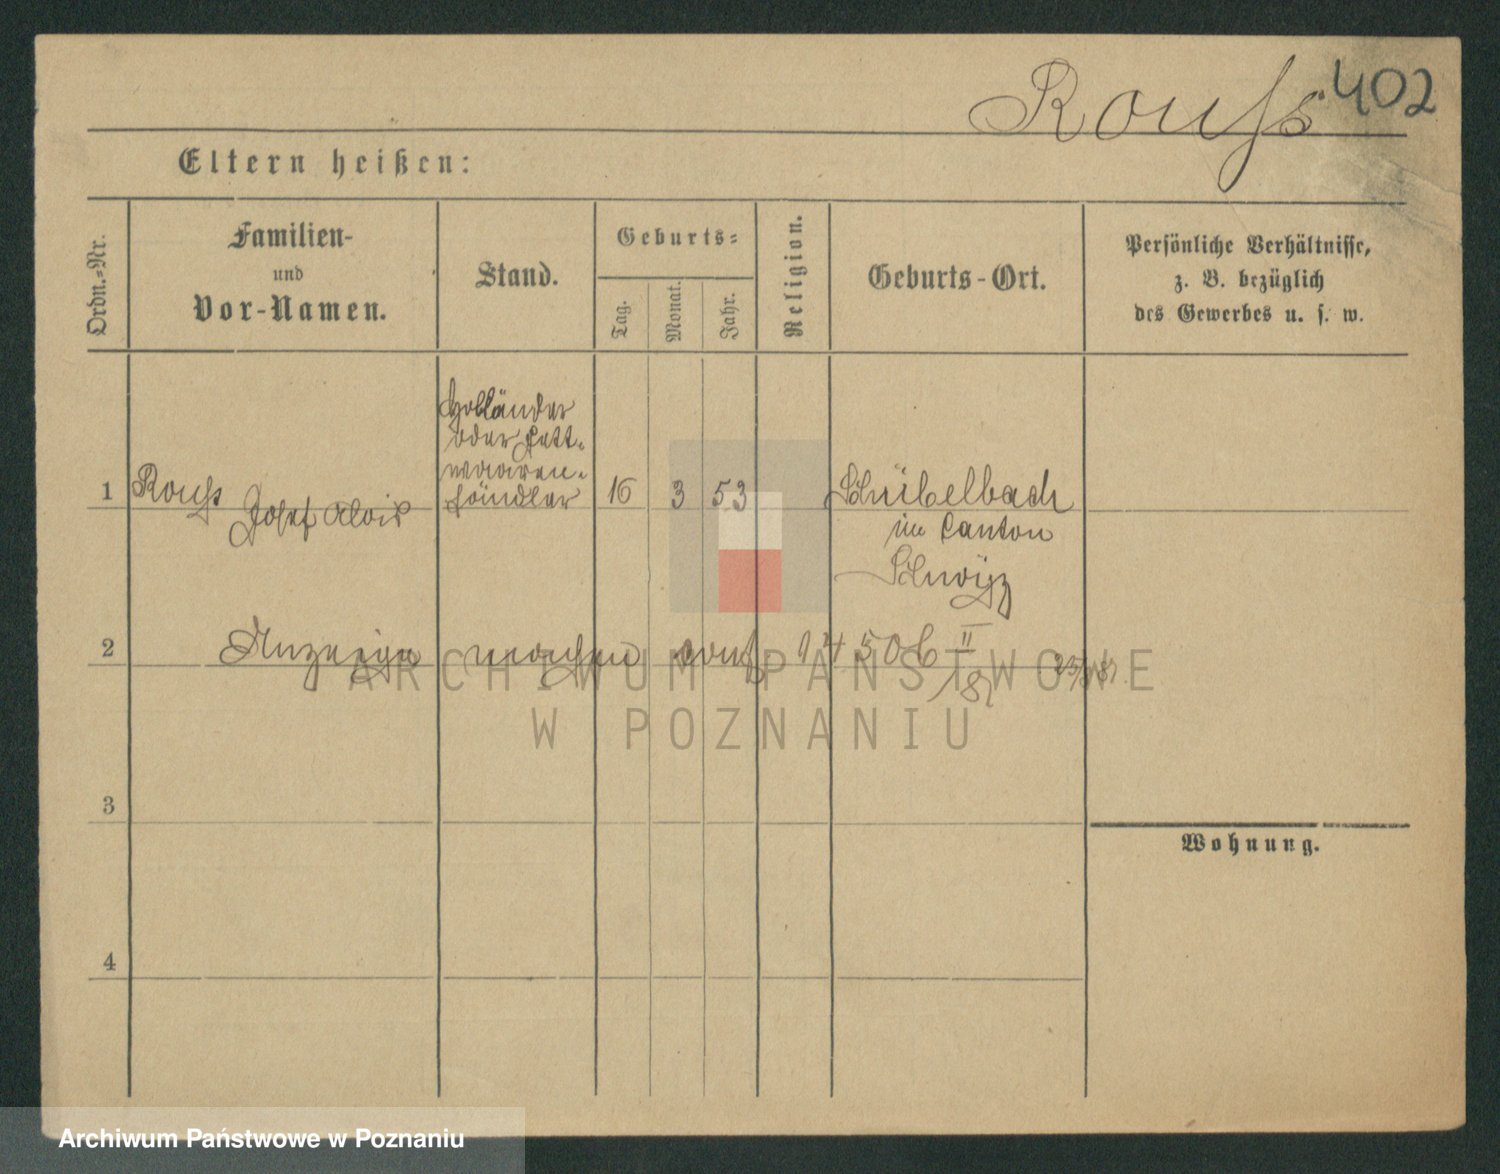 Rouss 402
Eltern heißen:
Ordn.-Nr.
Familien-
und
Vor-Namen.
Stand.
Geburts-
Tag.
Monat.
Jahr.
Religion.
Geburts-Ort.
Persönliche Verhältnisse,
z. B. bezüglich
des Gewerbes u. s. w.
Holländer
oder Fett-
waaren-
händler
1 Rouss Josef Alois 16 3 53 Schübelbach
im Canton
Schwÿz
2 Anzeige machen
3
Wohnung.
4
ARCHIWUM PAŃSTWOWE
W POZNANIU
Archiwum Państwowe w Poznaniu